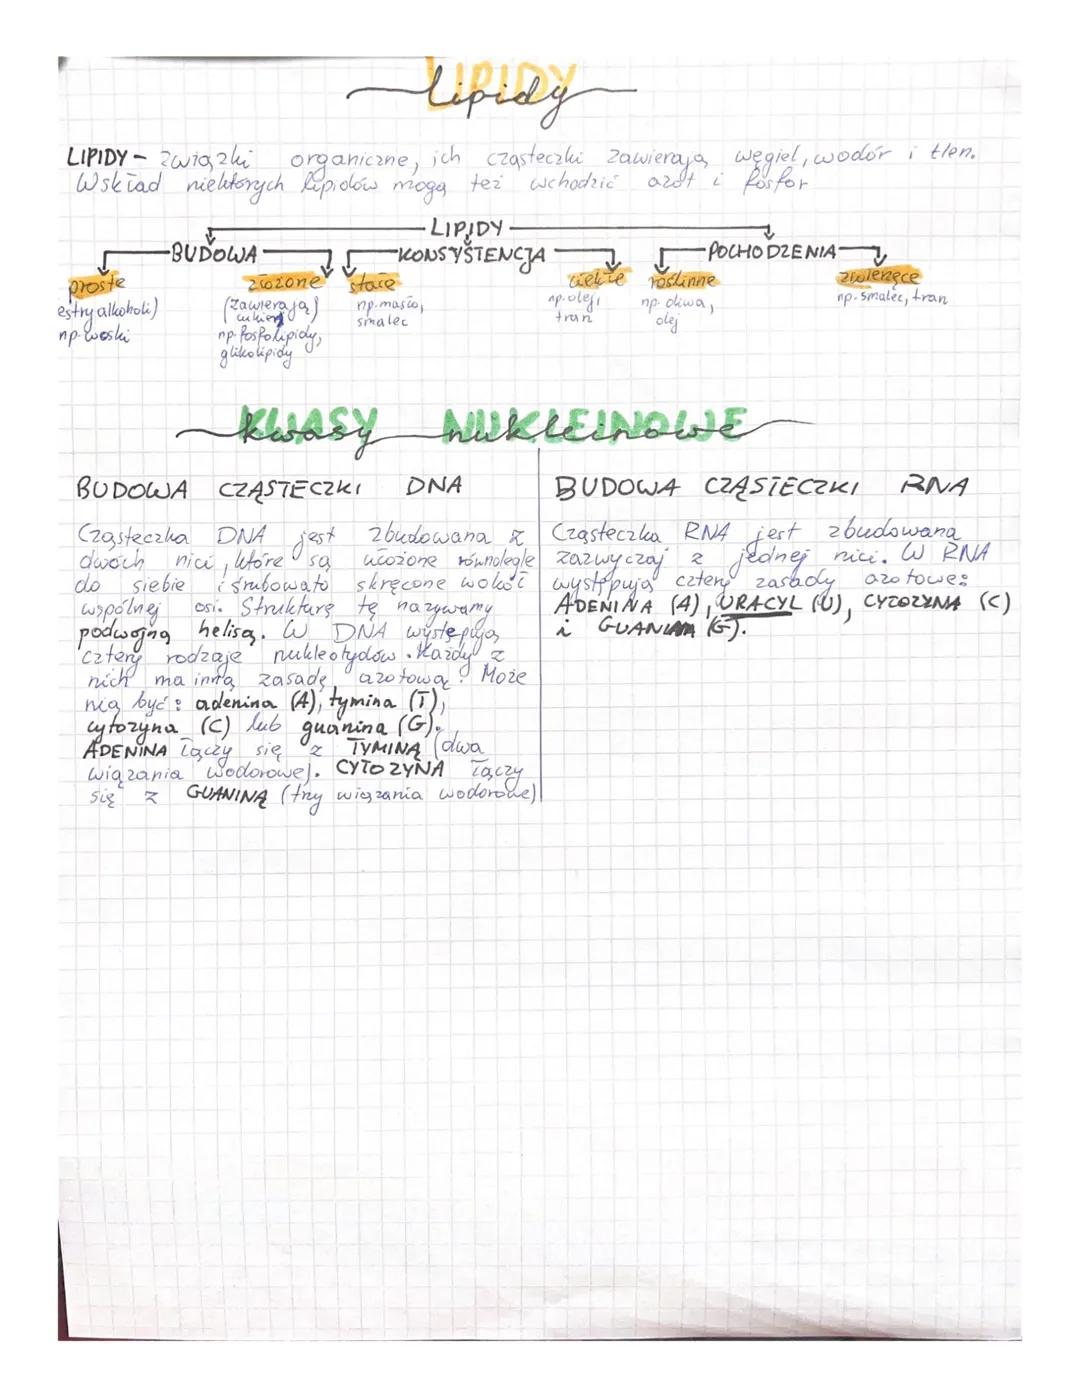 LIPIDY
lipidy
LIPIDY - związki organiczne, ich cząsteczki zawierają węgiel, wodór i tlen.
W skład niektórych lipidów mogą też wchodzić azot i fosfor
LIPIDY
BUDOWA KONSYSTENCJA POCHODZENIA
proste złożone stałe ciekłe roślinne zwierzęce
estry alkoholi) (zawierają np. masło, np. olej, np. oliwa, np. smalec, tran
np. woski cukier) smalec tran olej
np. fosfolipidy,
glikolipidy
KWASY NUKLEINOWE
kwasy nukleinowe
BUDOWA CZĄSTECZKI DNA
Cząsteczka DNA jest zbudowana z
dwóch nici, które są ułożone równolegle
do siebie i śrubowato skręcone wokół
wspólnej osi. Strukturę tę nazywamy
podwójną helisą. W DNA występują
cztery rodzaje nukleotydów. Każdy z
nich ma inną zasadę azotową. Może
nią być: adenina (A), tymina (T),
cytozyna (C) lub guanina (G).
ADENINA łączy się z TYMINĄ (dwa
wiązania wodorowe). CYTOZYNA łączy
się z GUANINĄ (trzy wiązania wodorowe)
BUDOWA CZĄSTECZKI RNA
Cząsteczka RNA jest zbudowana
zazwyczaj z jednej nici. W RNA
występują cztery zasady azotowe:
ADENINA (A), URACYL (U), CYTOZYNA (C)
i GUANINA (G).